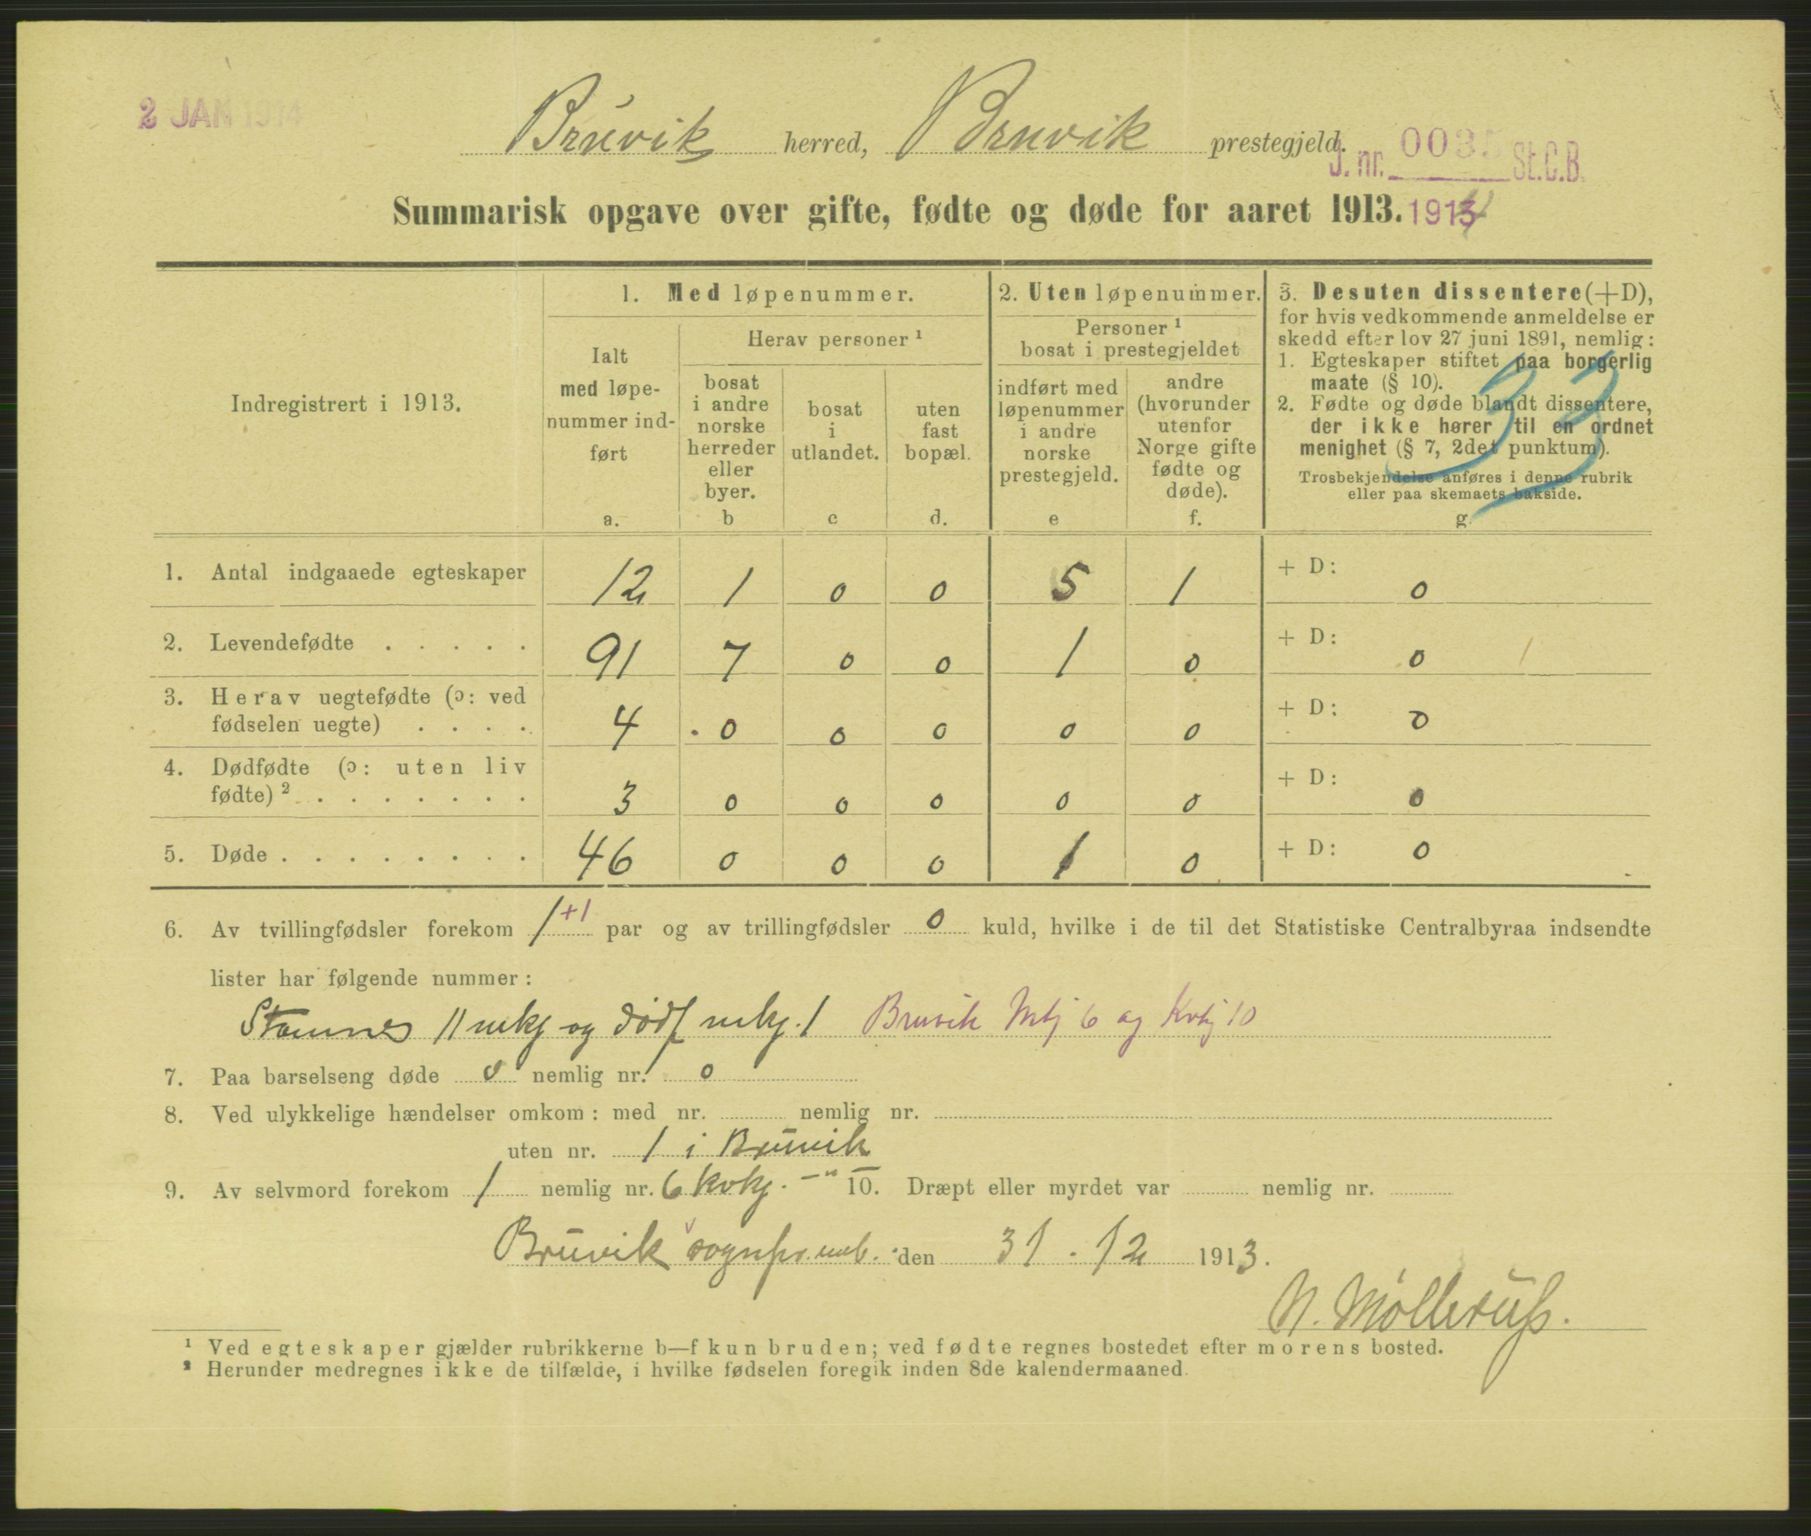 2 JAN 1914
Bruvik herred, Bruvik prestegjeld.
J. nr. 0035 St.C.B.
Summarisk opgave over gifte, fødte og døde for aaret 1913. 1914
Indregistrert i 1913.
1. Med løpenummer.
Ialt
med løpe-
nummer ind-
ført
a.
Herav personer ¹
bosat
i andre
norske
herreder
eller
byer.
b
bosat
i
utlandet.
c
uten
fast
bopæl.
d.
2. Uten løpenummer.
Personer ¹
bosat i prestegjeldet
indført med
løpenummer
i andre
norske
prestegjeld.
e
andre
(hvorunder
utenfor
Norge gifte
fødte og
døde).
f.
3. Desuten dissentere (+D),
for hvis vedkommende anmeldelse er
skedd efter lov 27 juni 1891, nemlig:
1. Egteskaper stiftet paa borgerlig
maate (§ 10).
2. Fødte og døde blandt dissentere,
der ikke hører til en ordnet
menighet (§ 7, 2det punktum).
Trosbekjendelse anføres i denne rubrik
eller paa skemaets bakside.
g.
33
1. Antal indgaaede egteskaper 12 1 0 0 5 1 + D: 0
2. Levendefødte . . . . . 91 7 0 0 1 0 + D: 0 1
3. Herav uegtefødte (ɔ: ved
fødselen uegte) . . . . 4 0 0 0 0 0 + D: 0
4. Dødfødte (ɔ: uten liv
fødte) ² . . . . . . . 3 0 0 0 0 0 + D: 0
5. Døde . . . . . . . . . 46 0 0 0 1 0 + D: 0
6. Av tvillingfødsler forekom 1 +1 par og av trillingfødsler 0 kuld, hvilke i de til det Statistiske Centralbyraa indsendte
lister har følgende nummer:
Stamnes 11 mkj og dødf mkj. 1 Bruvik Mkj 6 og Kvkj 10
7. Paa barselseng døde 0 nemlig nr. 0
8. Ved ulykkelige hændelser omkom: med nr. nemlig nr.
uten nr. 1 i Bruvik
9. Av selvmord forekom 1 nemlig nr. 6 Kvkj. —"— 10. Dræpt eller myrdet var nemlig nr.
Bruvik den 31. 12 1913.
¹ Ved egteskaper gjælder rubrikkerne b—f kun bruden; ved fødte regnes bostedet efter morens bosted.
² Herunder medregnes ikke de tilfælde, i hvilke fødselen foregik inden 8de kalendermaaned.